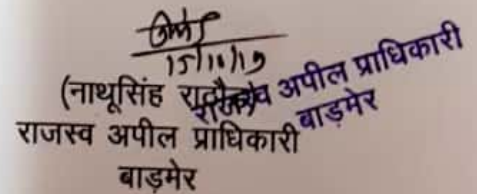 15/10/19
(नाथूसिंह राठौड़)
राजस्व अपील प्राधिकारी
बाड़मेर
राजस्व अपील प्राधिकारी
बाड़मेर